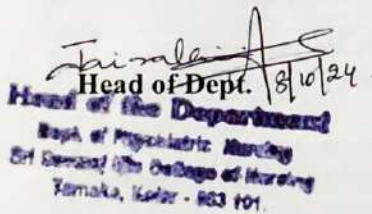 Head of Dept. 8/10/24
Head of the Department
Dept. of Psychiatric Nursing
Sri Devaraj Urs College of Nursing
Tamaka, Kolar - 563 101.